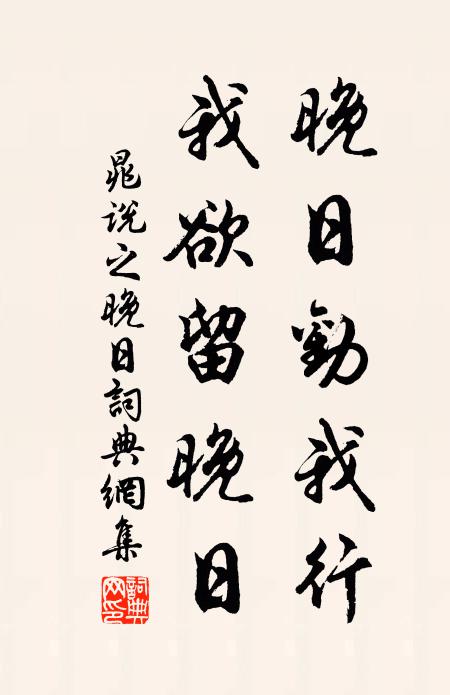 晚日勸我行
我欲留晚日
晁说之晚日詞典網集
詞典网印